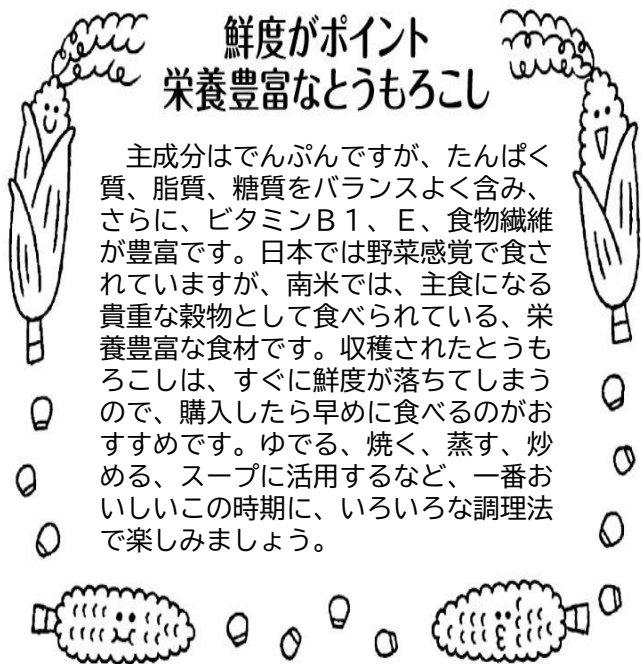 鮮度がポイント
栄養豊富なとうもろこし
　主成分はでんぷんですが、たんぱく
質、脂質、糖質をバランスよく含み、
さらに、ビタミンＢ１、Ｅ、食物繊維
が豊富です。日本では野菜感覚で食さ
れていますが、南米では、主食になる
貴重な穀物として食べられている、栄
養豊富な食材です。収穫されたとうも
ろこしは、すぐに鮮度が落ちてしまう
ので、購入したら早めに食べるのがお
すすめです。ゆでる、焼く、蒸す、炒
める、スープに活用するなど、一番お
いしいこの時期に、いろいろな調理法
で楽しみましょう。